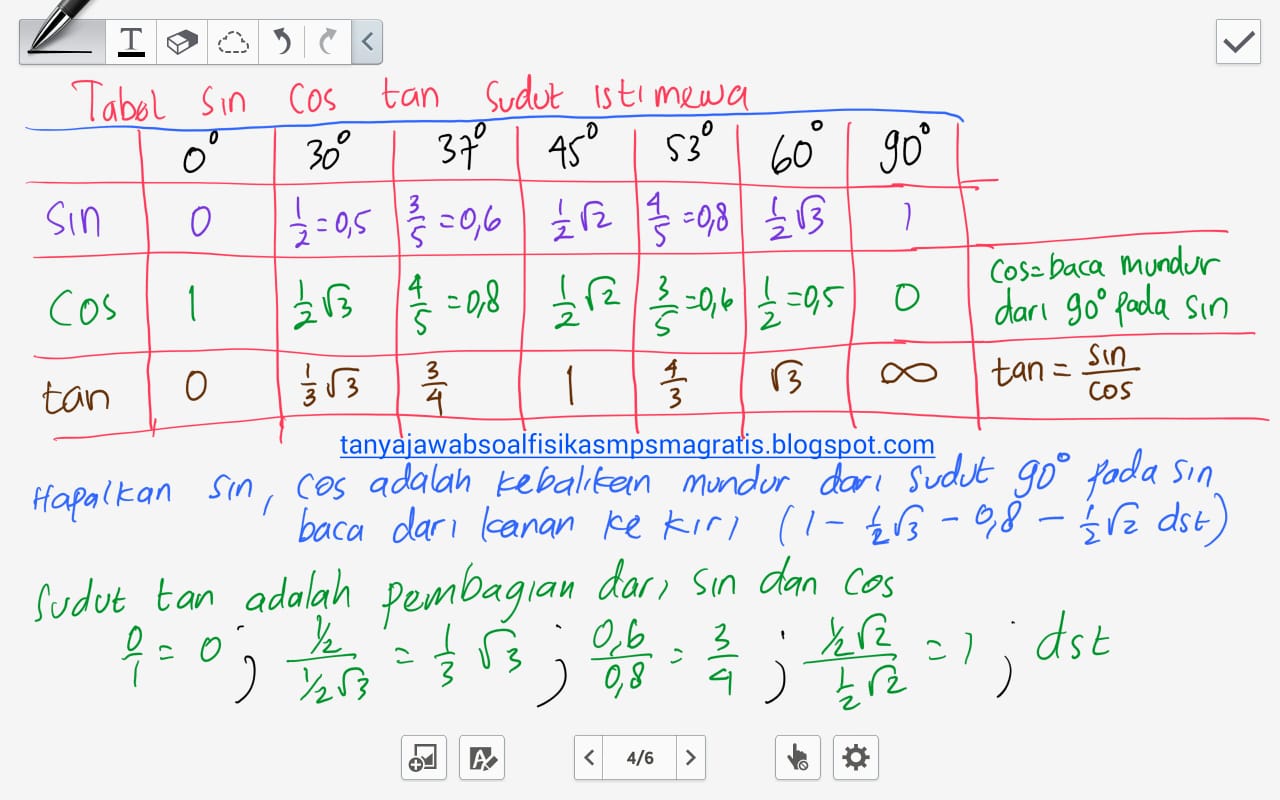 T
Tabel sin cos tan sudut istimewa
0° 30° 37° 45° 53° 60° 90°
sin 0 1/2 = 0,5 3/5 = 0,6 1/2 √2 4/5 = 0,8 1/2 √3 1
cos 1 1/2 √3 4/5 = 0,8 1/2 √2 3/5 = 0,6 1/2 = 0,5 0 cos = baca mundur
dari 90° pada sin
tan 0 1/3 √3 3/4 1 4/3 √3 ∞ tan = sin/cos
tanyajawabsoalfisikasmpsmagratis.blogspot.com
Hapalkan sin, cos adalah kebalikan mundur dari sudut 90° pada sin
baca dari kanan ke kiri (1 - 1/2 √3 - 0,8 - 1/2 √2 dst)
Sudut tan adalah pembagian dari sin dan cos
0/1 = 0 ; 1/2 / 1/2 √3 = 1/3 √3 ; 0,6/0,8 = 3/4 ; 1/2 √2 / 1/2 √2 = 1 ; dst
A
4/6